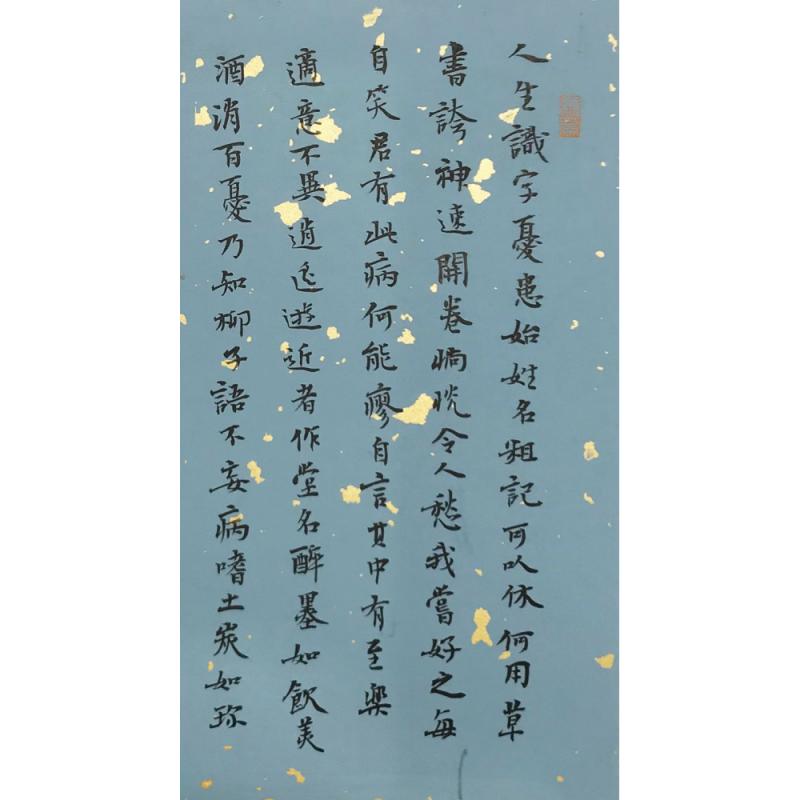 人生識字憂患始姓名粗記可以休何用草
書誇神速開卷惝怳令人愁我嘗好之每
自笑君有此病何能瘳自言其中有至樂
適意不異逍遙遊近者作堂名醉墨如飲美
酒消百憂乃知柳子語不妄病嗜土炭如珍